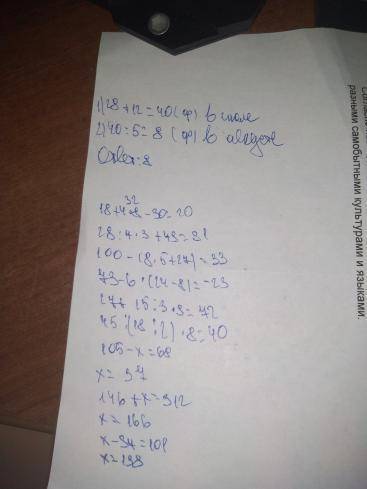 1) 28 + 12 = 40 (ф) в июле
2) 40 : 5 = 8 (ф) в
Ответ: 8
32
18 + 4 · 8 - 30 = 20
28 : 4 · 3 + 43 = 81
100 - (8 · 5 + 27) = 33
73 - 6 · (24 - 8) = -23
27 + 15 : 3 · 9 = 72
45 : (18 : 2) · 8 = 40
105 - x = 68
x = 37
146 + x = 312
x = 166
x - 97 = 101
x = 198
разными самобытными культурами и языками.